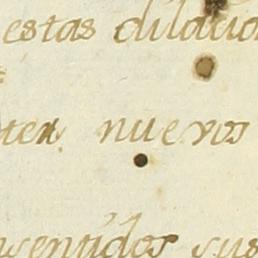 estas dilacio
ten nuevos
sentidos sus